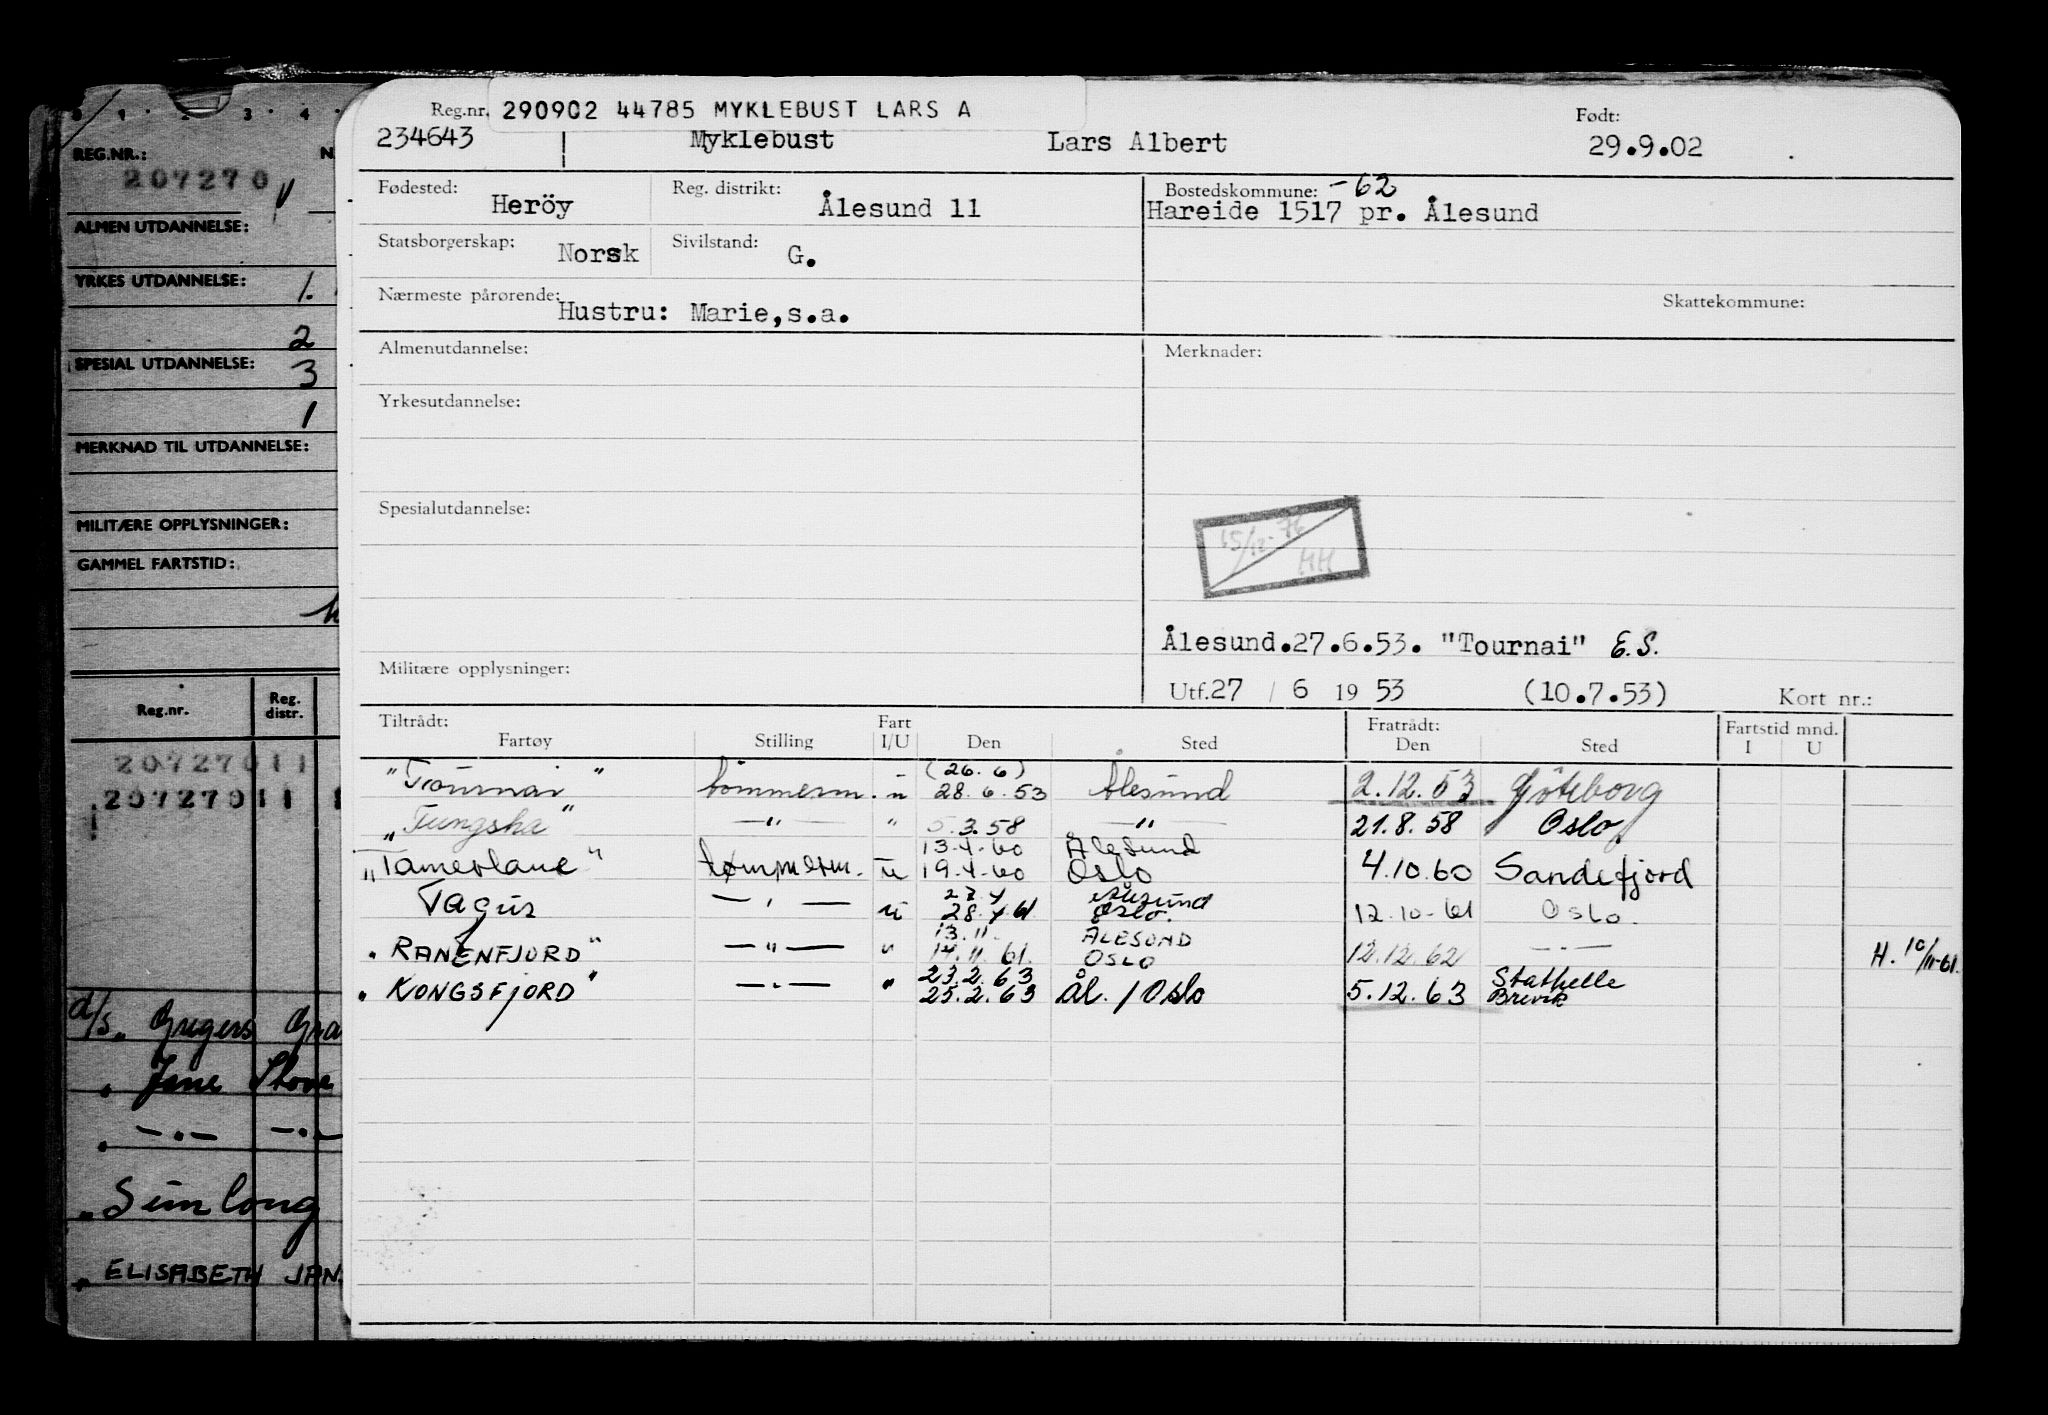 REG.NR.:
207270
ALMEN UTDANNELSE:
YRKES UTDANNELSE: 1.
2
SPESIAL UTDANNELSE: 3
1
MERKNAD TIL UTDANNELSE:
MILITÆRE OPPLYSNINGER:
GAMMEL FARTSTID:
Reg.nr. Reg. distr.
20727011
20727011
d/s „ Gregers Gra
„ Jane Stove
„ —„— —„—
„ Simlong
„ ELISABETH JAN
Reg.nr. 290902 44785 MYKLEBUST LARS A Født:
234643 Myklebust Lars Albert 29.9.02
Fødested: Heröy Reg. distrikt: Ålesund 11 Bostedskommune: -62
Hareide 1517 pr. Ålesund
Statsborgerskap: Norsk Sivilstand: G.
Nærmeste pårørende: Hustru: Marie,s.a. Skattekommune:
Almenutdannelse: Merknader:
Yrkesutdannelse:
Spesialutdannelse:
15/12-76
HH
Ålesund.27.6.53. "Tournai" E.S.
Militære opplysninger: Utf.27 / 6 19 53 (10.7.53) Kort nr.:
Tiltrådt: Fart Fratrådt: Fartstid mnd.
Fartøy Stilling I/U Den Sted Den Sted I U
(26.6)
"Tournai" tömmerm. u 28.6.53 Ålesund 2.12.53 Göteborg
„Tungsha" —"— " 5.3.58 —"— 21.8.58 Oslo
13.4.60 Ålesund
„Tamerlane" tømmerm. u 19.4.60 Oslo 4.10.60 Sandefjord
27.4 Ålesund
Tagus —"— u 28.4.61 Oslo. 12.10.61 Oslo.
13.11. ÅLESUND
"RANENFJORD" —"— " 14.11.61. OSLO 12.12.62 —"— H. 10/11-61.
23.2.63 Stathelle
"KONGSFJORD" —"— " 25.2.63 Ål. / Oslo 5.12.63 Brevik